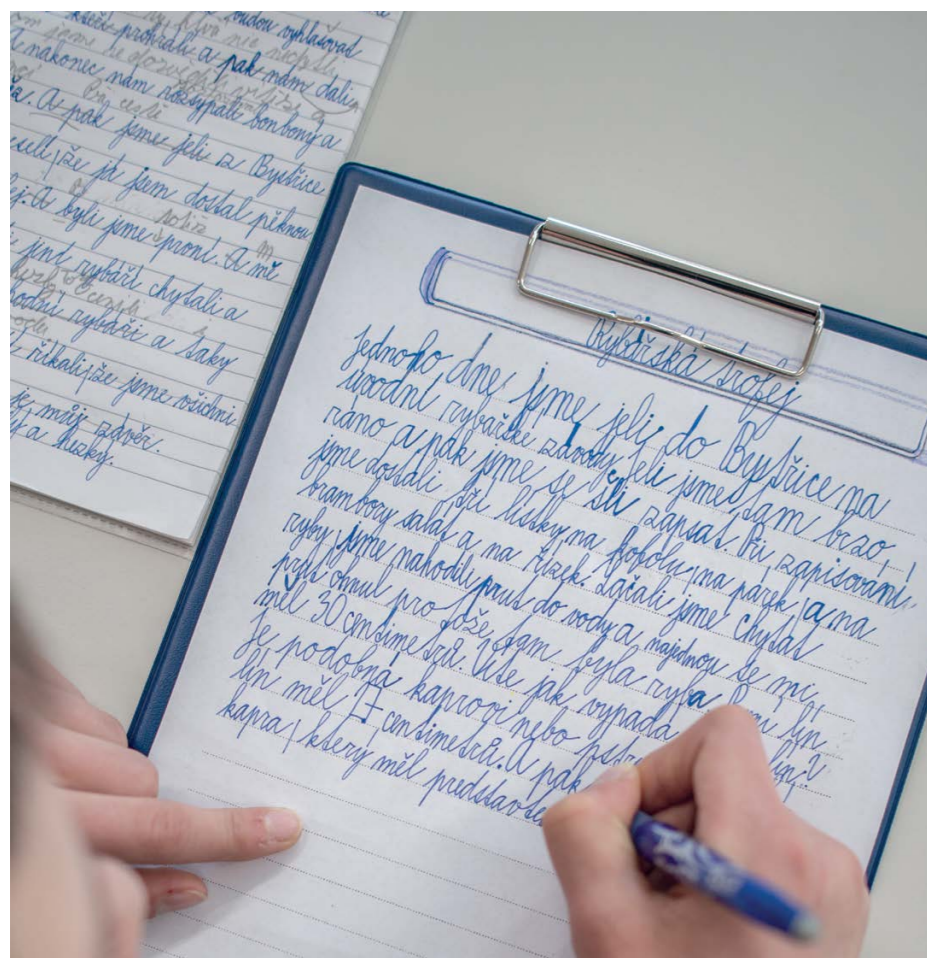 budou vyhlašovat
kteří prohráli a pak nám dali
A nakonec nám rozsypali bonbony a
A pak jsme jeli z Bystřice
že já jsem dostal pěknou
A byli jsme první. A mě
jiní rybáři chytali a
rybáři a taky
říkali, že jsme všichni
můj závěr.
a hezký.
Rybářská trofej
Jednoho dne jsme jeli do Bystřice na
úvodní rybářské závody. Jeli jsme tam brzo
ráno a pak jsme se šli zapsat. Při zapisování
jsme dostali tři lístky, na kofolu, na párek, a na
brambory salát a na řízek. Začali jsme chytat
ryby, jsme nahodili prut do vody a najednou se mi
prut ohnul pro tože tam byla ryba. První lín
měl 30 centimetrů. Víte jak vypadá lín?
je podobná kaprovi nebo
lín měl 17 centimetrů. A pak
kapra, který měl představte